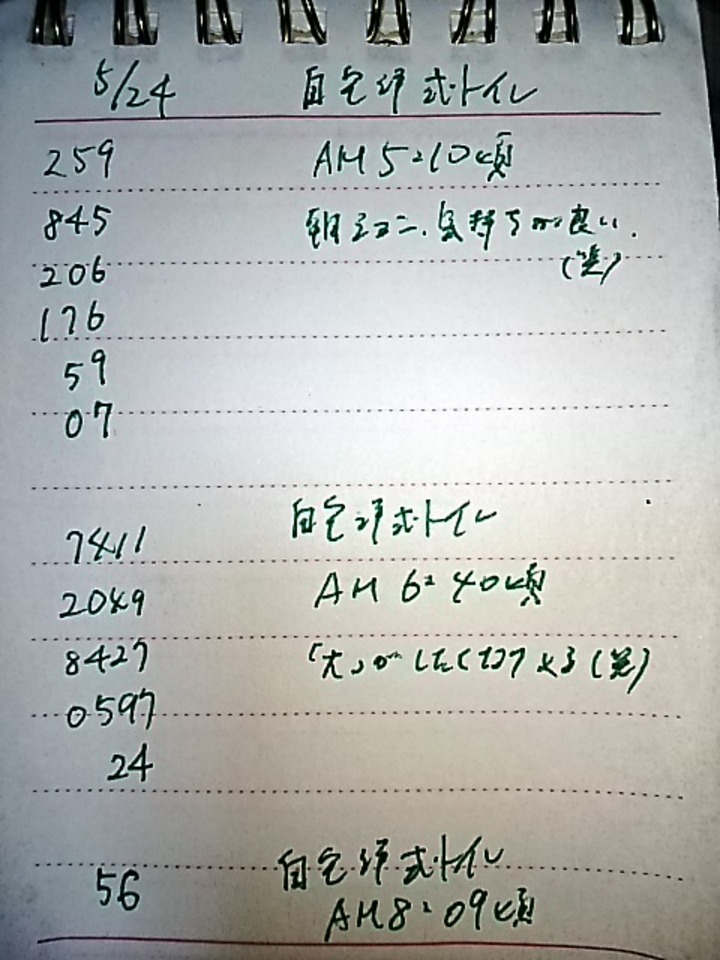 5/24 自宅洋式トイレ
259 AM 5:10頃
845 朝ショニ、気持ちが良い。
206 (笑)
176
59
07
自宅洋式トイレ
7411
2049 AM 6:40頃
8427 「大」がしたくなってる(笑)
0597
24
自宅洋式トイレ
56 AM 8:09頃